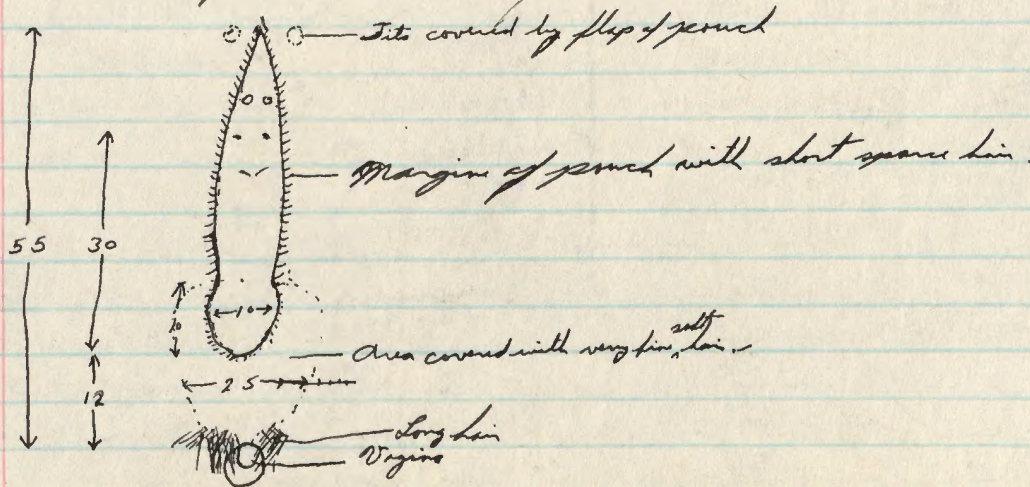 Tits covered by flap of pouch
Margins of pouch with short sparce hair.
55
30
20
10
Area covered with very fine soft hair
25
12
Long hair
Vagina